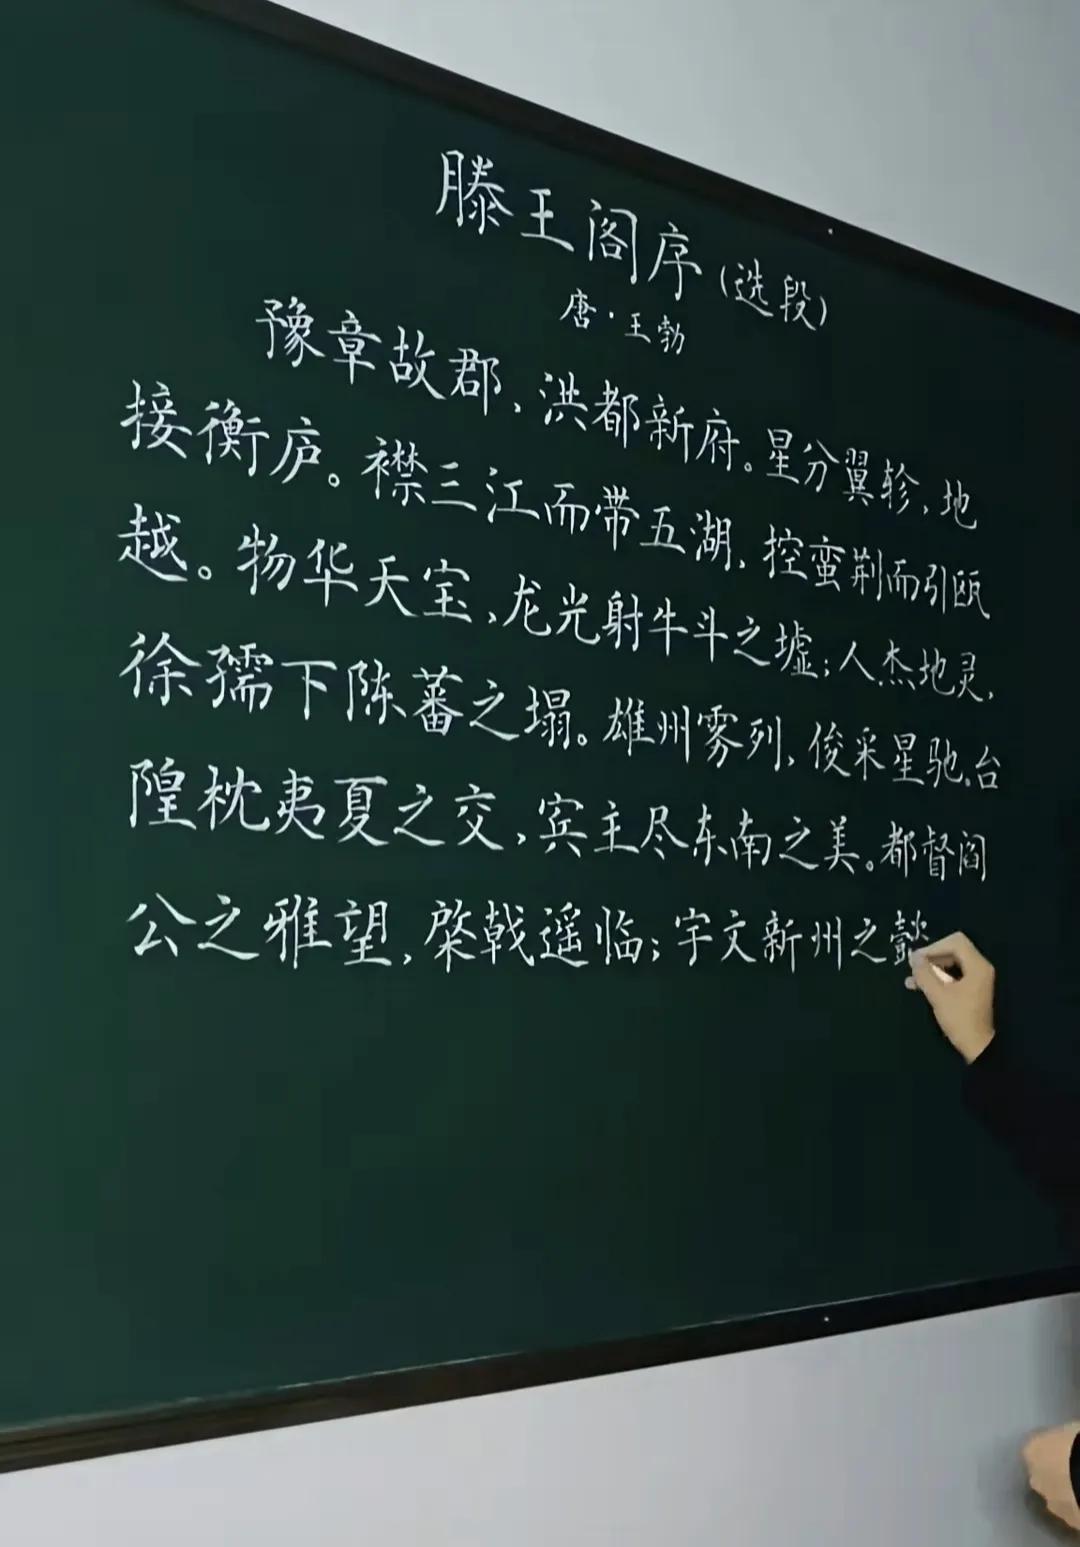 滕王阁序(选段)
唐·王勃
豫章故郡,洪都新府。星分翼轸,地
接衡庐。襟三江而带五湖,控蛮荆而引瓯
越。物华天宝,龙光射牛斗之墟;人杰地灵,
徐孺下陈蕃之塌。雄州雾列,俊采星驰。台
隍枕夷夏之交,宾主尽东南之美。都督阎
公之雅望,棨戟遥临;宇文新州之